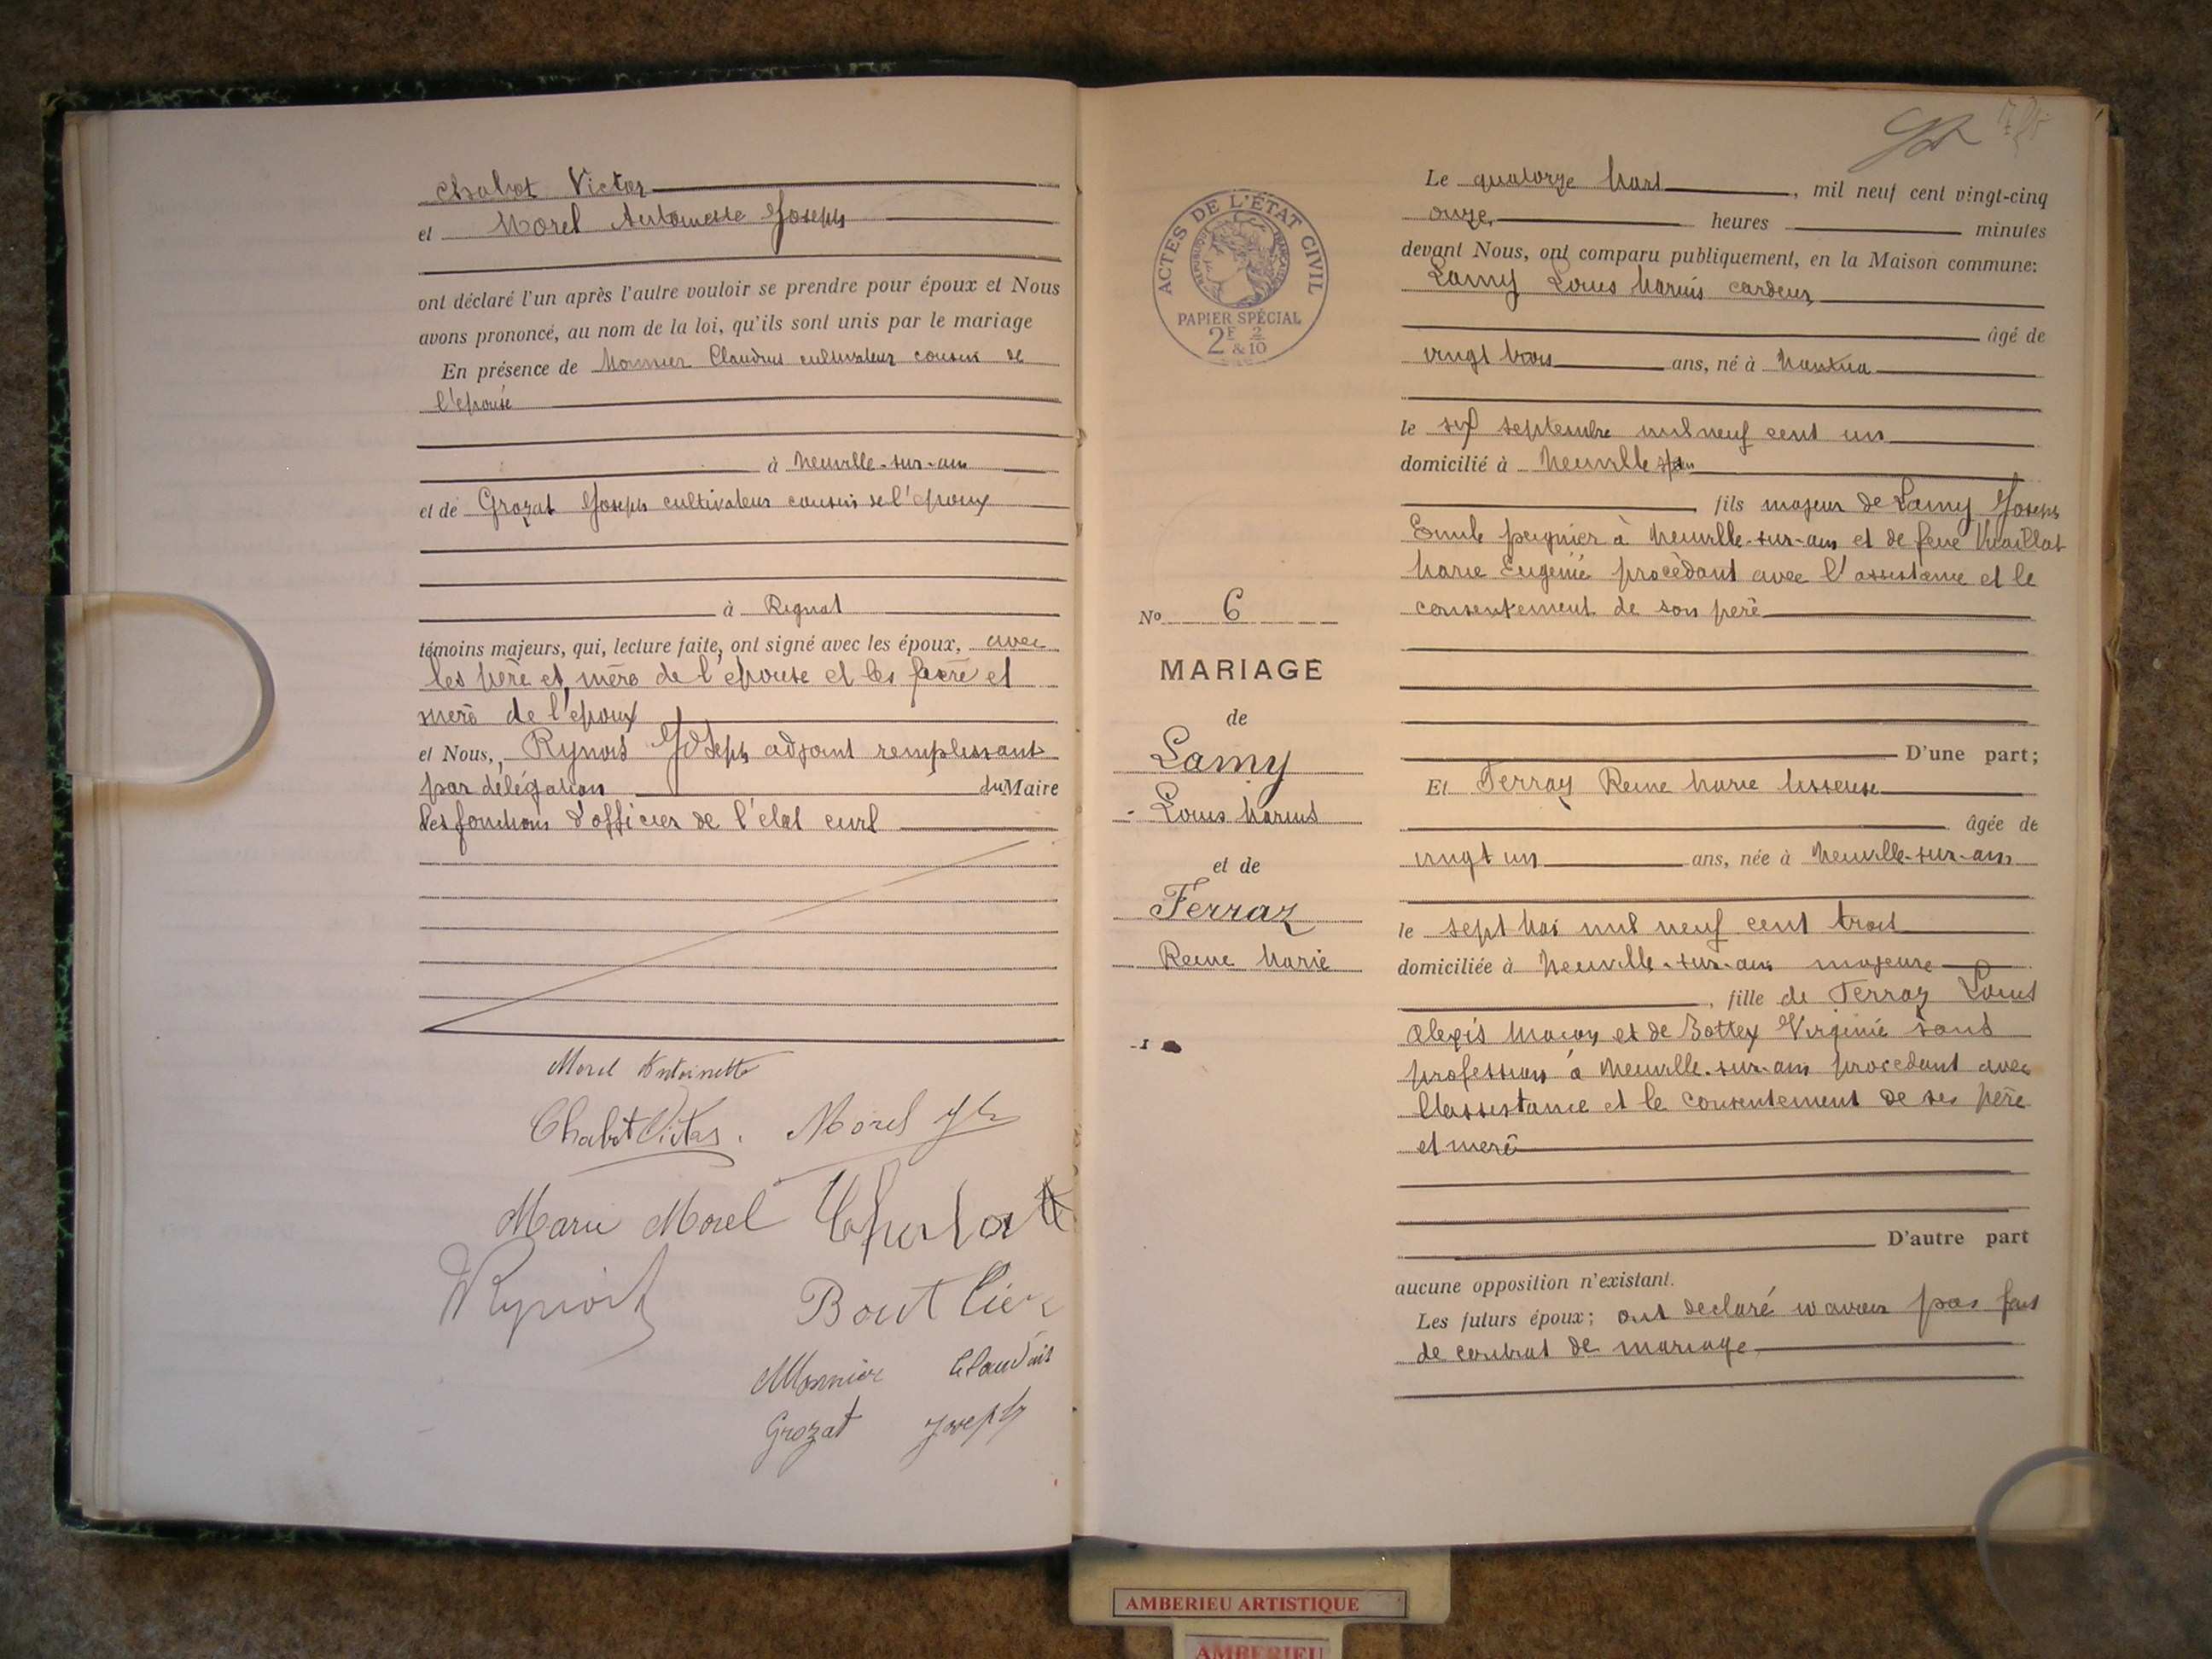 Chabot Victor
et Morel Antoinette Joseph
ont déclaré l'un après l'autre vouloir se prendre pour époux et Nous
avons prononcé, au nom de la loi, qu'ils sont unis par le mariage
En présence de Monnier Claudius cultivateur cousin de
l'épouse
à Neuville-sur-ain
et de Grozat Joseph cultivateur cousin de l'epoux
à Rignat
témoins majeurs, qui, lecture faite, ont signé avec les époux, avec
les père et mère de l'epouse et les père et
mère de l'epoux
et Nous, Rynois Joseph adjoint remplissant
par délégation du Maire
les fonctions d'officier de l'état civil
Morel Antoinette
Chabot Victor. Morel
Marie Morel
Rynois Bouttier
Monnier Claudius
Grozat Joseph
ACTES DE L'ÉTAT CIVIL
RÉPUBLIQUE FRANÇAISE
PAPIER SPÉCIAL
2F & 2/10
No 6
MARIAGE
de
Lamy
Louis Marius
et de
Ferraz
Reine Marie
Le quatorze Mars, mil neuf cent vingt-cinq
onze heures minutes
devant Nous, ont comparu publiquement, en la Maison commune:
Lamy Louis Marius cardeur
âgé de
vingt trois ans, né à Nantua
le six septembre mil neuf cent un
domicilié à Neuville s/ain
fils majeur de Lamy Joseph
Emile peignier à Neuville-sur-ain et de feue Vuaillat
Marie Eugénie procèdant avec l'assistance et le
consentement de son père
D'une part;
Et Ferraz Reine Marie tisseuse
âgée de
vingt un ans, née à Neuville-sur-ain
le sept Mai mil neuf cent trois
domiciliée à Neuville-sur-ain majeure
, fille de Ferraz Louis
Alexis Maçon et de Bottex Virginie sans
profession à Neuville-sur-ain procedant avec
l'assistance et le consentement de ses père
et merè
D'autre part
aucune opposition n'existant.
Les futurs époux; ont declaré n'avoir pas fait
de contrat de mariage
AMBERIEU ARTISTIQUE
AMBERIEU